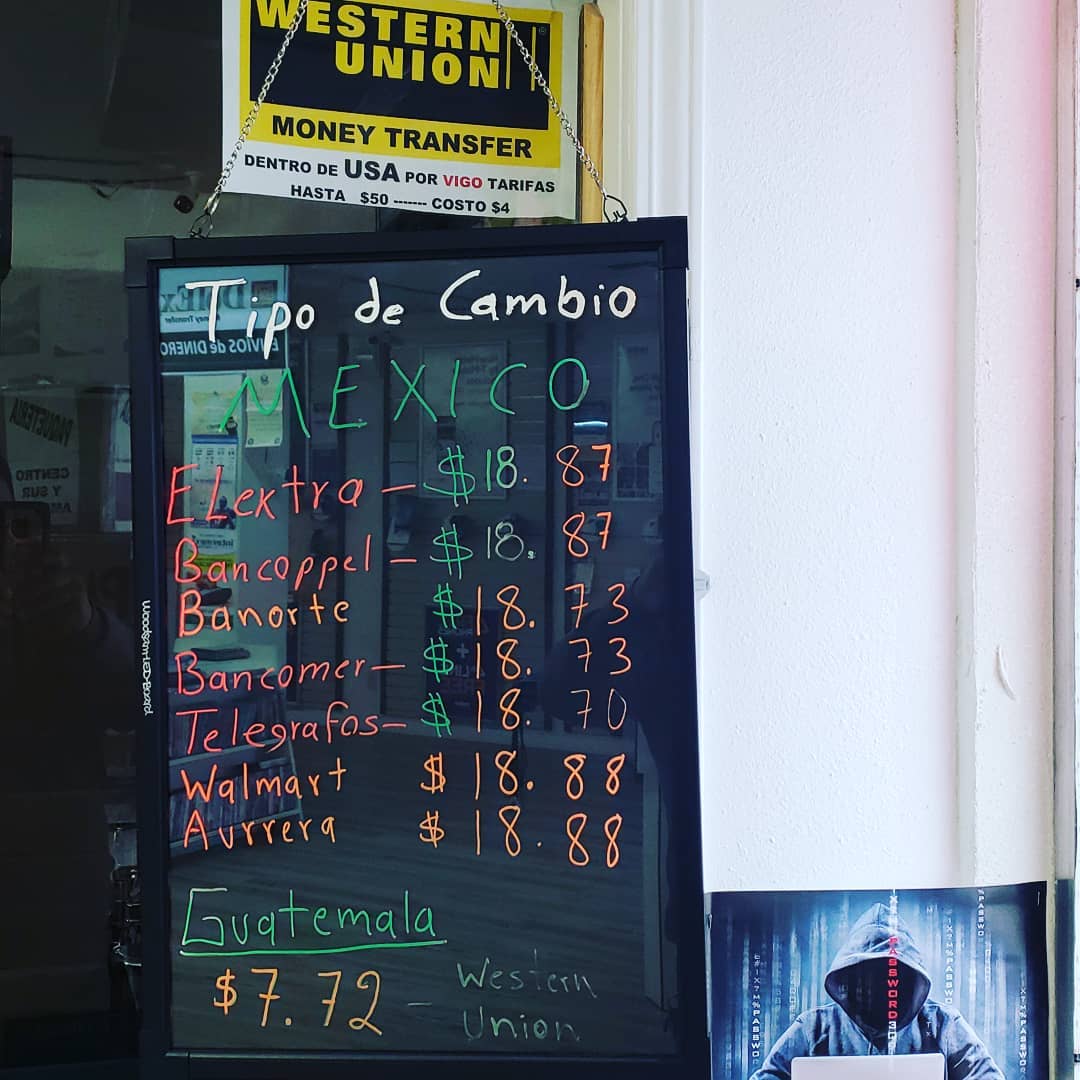 WESTERN
UNION
MONEY TRANSFER
DENTRO DE USA POR VIGO TARIFAS
HASTA $50 ------- COSTO $4
Tipo de Cambio
MEXICO
ELextra — $18.87
Bancoppel — $18.87
Banorte $18.73
Bancomer — $18.73
Telegrafos — $18.70
Walmart $18.88
Aurrera $18.88
Guatemala
$7.72 — Western
Union
ENVIOS de DINERO
PAQUETERIA
CENTRO
Y SUR
PASSWORD